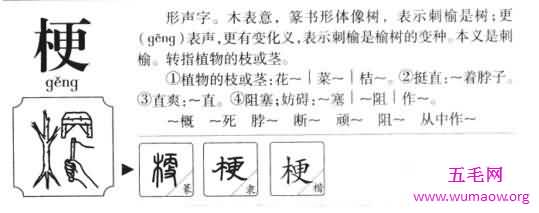 梗
gěng
形声字。木表意，篆书形体像树，表示刺榆是树；更
(gēng)表声，更有变化义，表示刺榆是榆树的变种。本义是刺
榆。转指植物的枝或茎。
①植物的枝或茎：花～｜菜～｜桔～。②挺直：～着脖子。
③直爽：～直。④阻塞；妨碍：～塞｜～阻｜作～。
～概 ～死 脖～ 断～ 顽～ 阻～ 从中作～
梗 篆
梗 隶
梗 楷
五毛网
www.wumaow.org